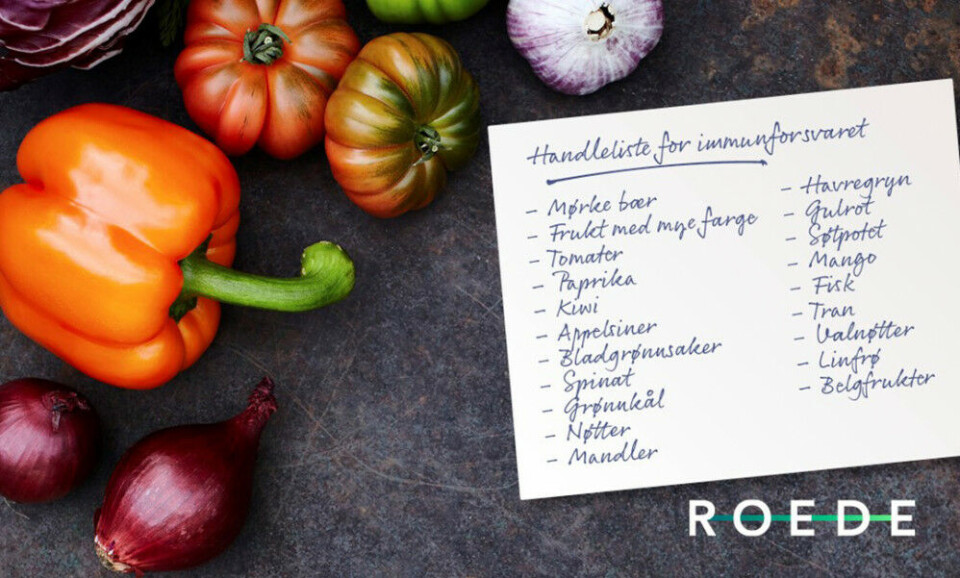 Handleliste for immunforsvaret
- Mørke bær
- Frukt med mye farge
- Tomater
- Paprika
- Kiwi
- Appelsiner
- Bladgrønnsaker
- Spinat
- Grønnkål
- Nøtter
- Mandler
- Havregryn
- Gulrot
- Søtpotet
- Mango
- Fisk
- Tran
- Valnøtter
- Linfrø
- Belgfrukter
ROEDE